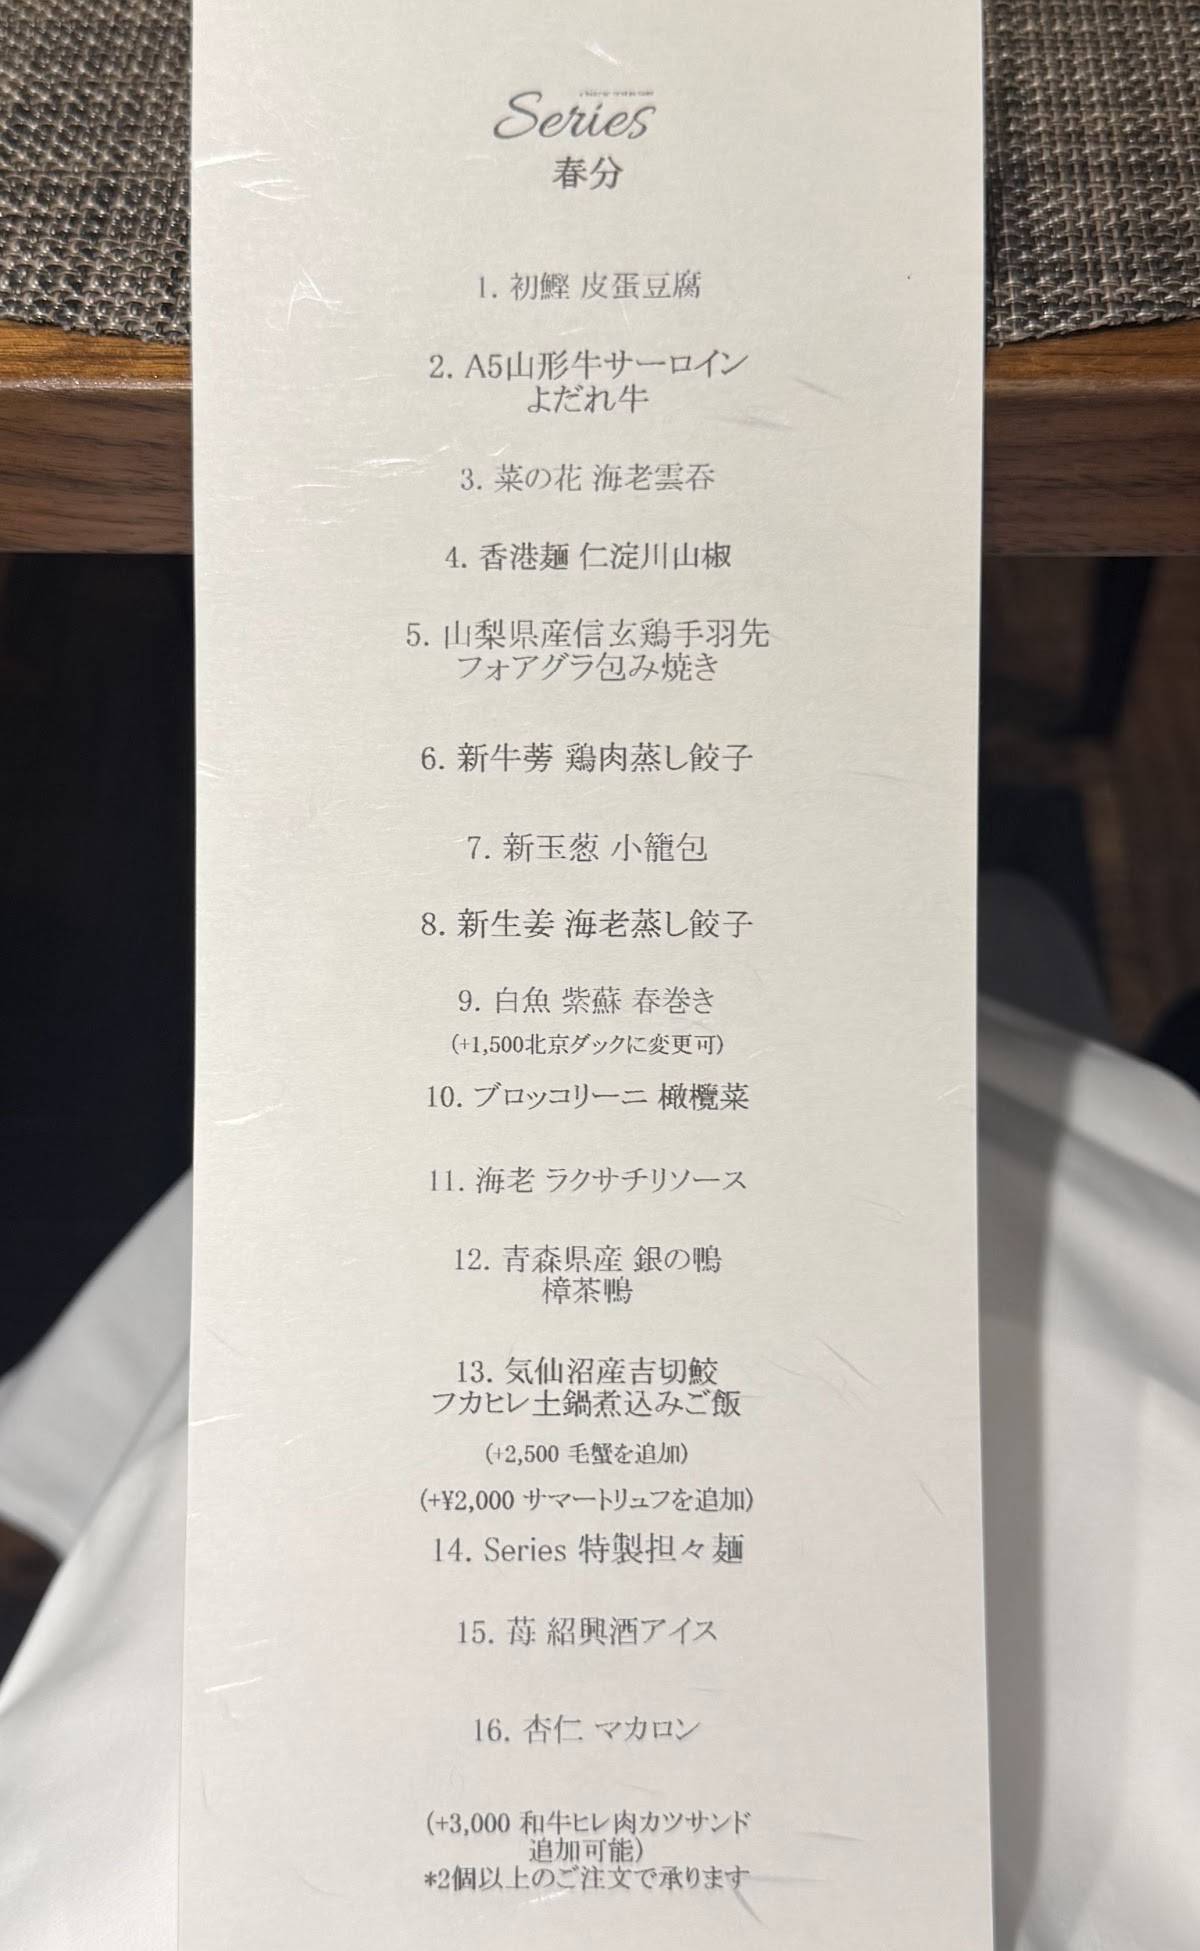 Series
春分
1. 初鰹 皮蛋豆腐
2. A5山形牛サーロイン
よだれ牛
3. 菜の花 海老雲呑
4. 香港麺 仁淀川山椒
5. 山梨県産信玄鶏手羽先
フォアグラ包み焼き
6. 新牛蒡 鶏肉蒸し餃子
7. 新玉葱 小籠包
8. 新生姜 海老蒸し餃子
9. 白魚 紫蘇 春巻き
(+1,500北京ダックに変更可)
10. ブロッコリーニ 橄欖菜
11. 海老 ラクサチリソース
12. 青森県産 銀の鴨
樟茶鴨
13. 気仙沼産吉切鮫
フカヒレ土鍋煮込みご飯
(+2,500 毛蟹を追加)
(+¥2,000 サマートリュフを追加)
14. Series 特製担々麺
15. 苺 紹興酒アイス
16. 杏仁 マカロン
(+3,000 和牛ヒレ肉カツサンド
追加可能)
*2個以上のご注文で承ります